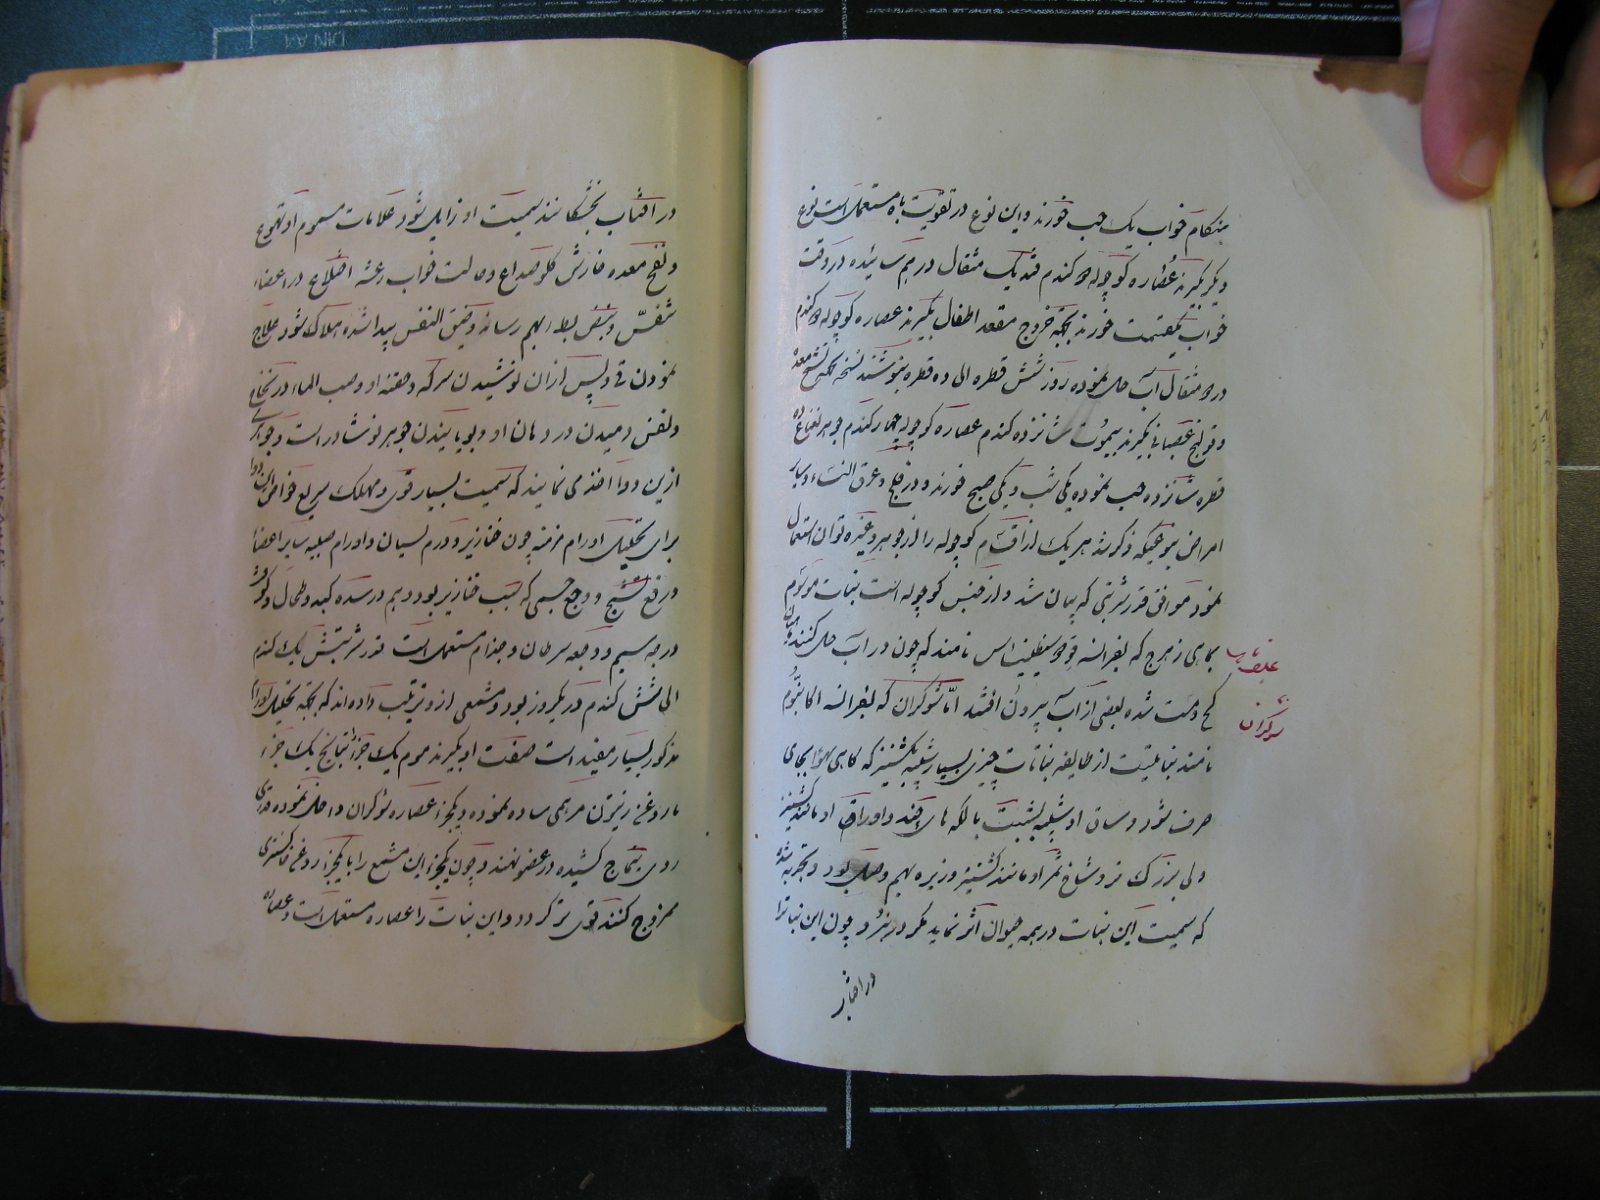 هنگام خواب یک حب خورند و این نوع در تقویت باه مستعمل است نوع
دیگر بگیرند عصاره کوچوله دو کندم قند یک مثقال درهم سائیده در وقت
خواب بیکقسمت خورند بجهة خروج مقعد اطفال بگیرند عصاره کوچوله دو کندم
در دو مثقال آب حل نموده روز شش قطره الی ده قطره بنوشند نسخه بجهة تشنج معده
و قولنج عصبانی بگیرند بیموت شانزده کندم عصاره کوچوله چهار کندم جوهر نعناع ده
قطره شانزده حب نموده یکی شب و یکی صبح خورند و در فلج و عرق النساء و سایر
امراض بنوعیکه ذکر شد هر یک از اقسام کوچوله را از جوهر و غیره توان استعمال
نمود موافق قدر شربتی که بیان شد و از جنس کوچوله است نبات موسوم
بماهی زهرج که بفرانسه نامند که چون در آب حل کنند ماهیان
کج و مست شده بعضی از آب بیرون افتند امّا شوکران که بفرانسه
نامند نباتیست از طایفه نباتات چیزی بسیار شبیه بکشنیز که کاهی سهوا بجای
صرف شود و ساق او شبیه بشبت با لکه های و اوراق او مانند کشنیز
ولی بزرگ تر و شاخ ثمر او مانند کشنیز و زیره بهم وصل بود و تجربه شده
که سمیت این نبات در همه حیوان اثر نماید مکر در بز و چون این نبات را
علف ماهی
شوکران
در افتاب
در افتاب بخشکانند سمیت او زایل شود علامات مسموم او تهوع
و نفخ معده خارش کلو صداع و حالت خواب رعشه اختلاج در اعضاء
تنفس و نبض بطاء بهم رسانده و ضیق النفس پیدا شده هلاک شود علاج
نمودن قی و پس از آن نوشیدن سرکه و حقنه او و صب الماء در نخاع
و نفس دمیدن در دهان او و بویانیدن جوهر نوشادر است و جوهری
ازین دوا اخذ می نمایند که سمیت بسیار قوی و مهلک سریع خواص این دوا
برای تحلیل اورام مزمنه چون خنازیر و ورم لسان و اورام صلبه سایر اعضا
و رفع تشنج و وجع جسمی که بسبب خنازیر بود و هم در سده کبد و طحال و کوفت
درجه سیم و وجعه سرطان و جذام مستعمل است قدر شربتش یک کندم
الی شش کندم در یکروز بود و مشمعی از و ترتیب داده اند که بجهة تحلیل اورام
مذکور بسیار مفید است صفت او بگیرند موم یک جزء زیتانج یک جزء
با روغن زیتون مرهمی ساده نموده و یکجزء عصاره شوکران داخل نموده قدری
روی تیماج کشیده در عضو نهند و چون یکجزء این مشمع را با یکجزء روغن خاکستری
ممزوج کنند قوی تر کردد و این نبات را عصاره مستعمل است و عصاره